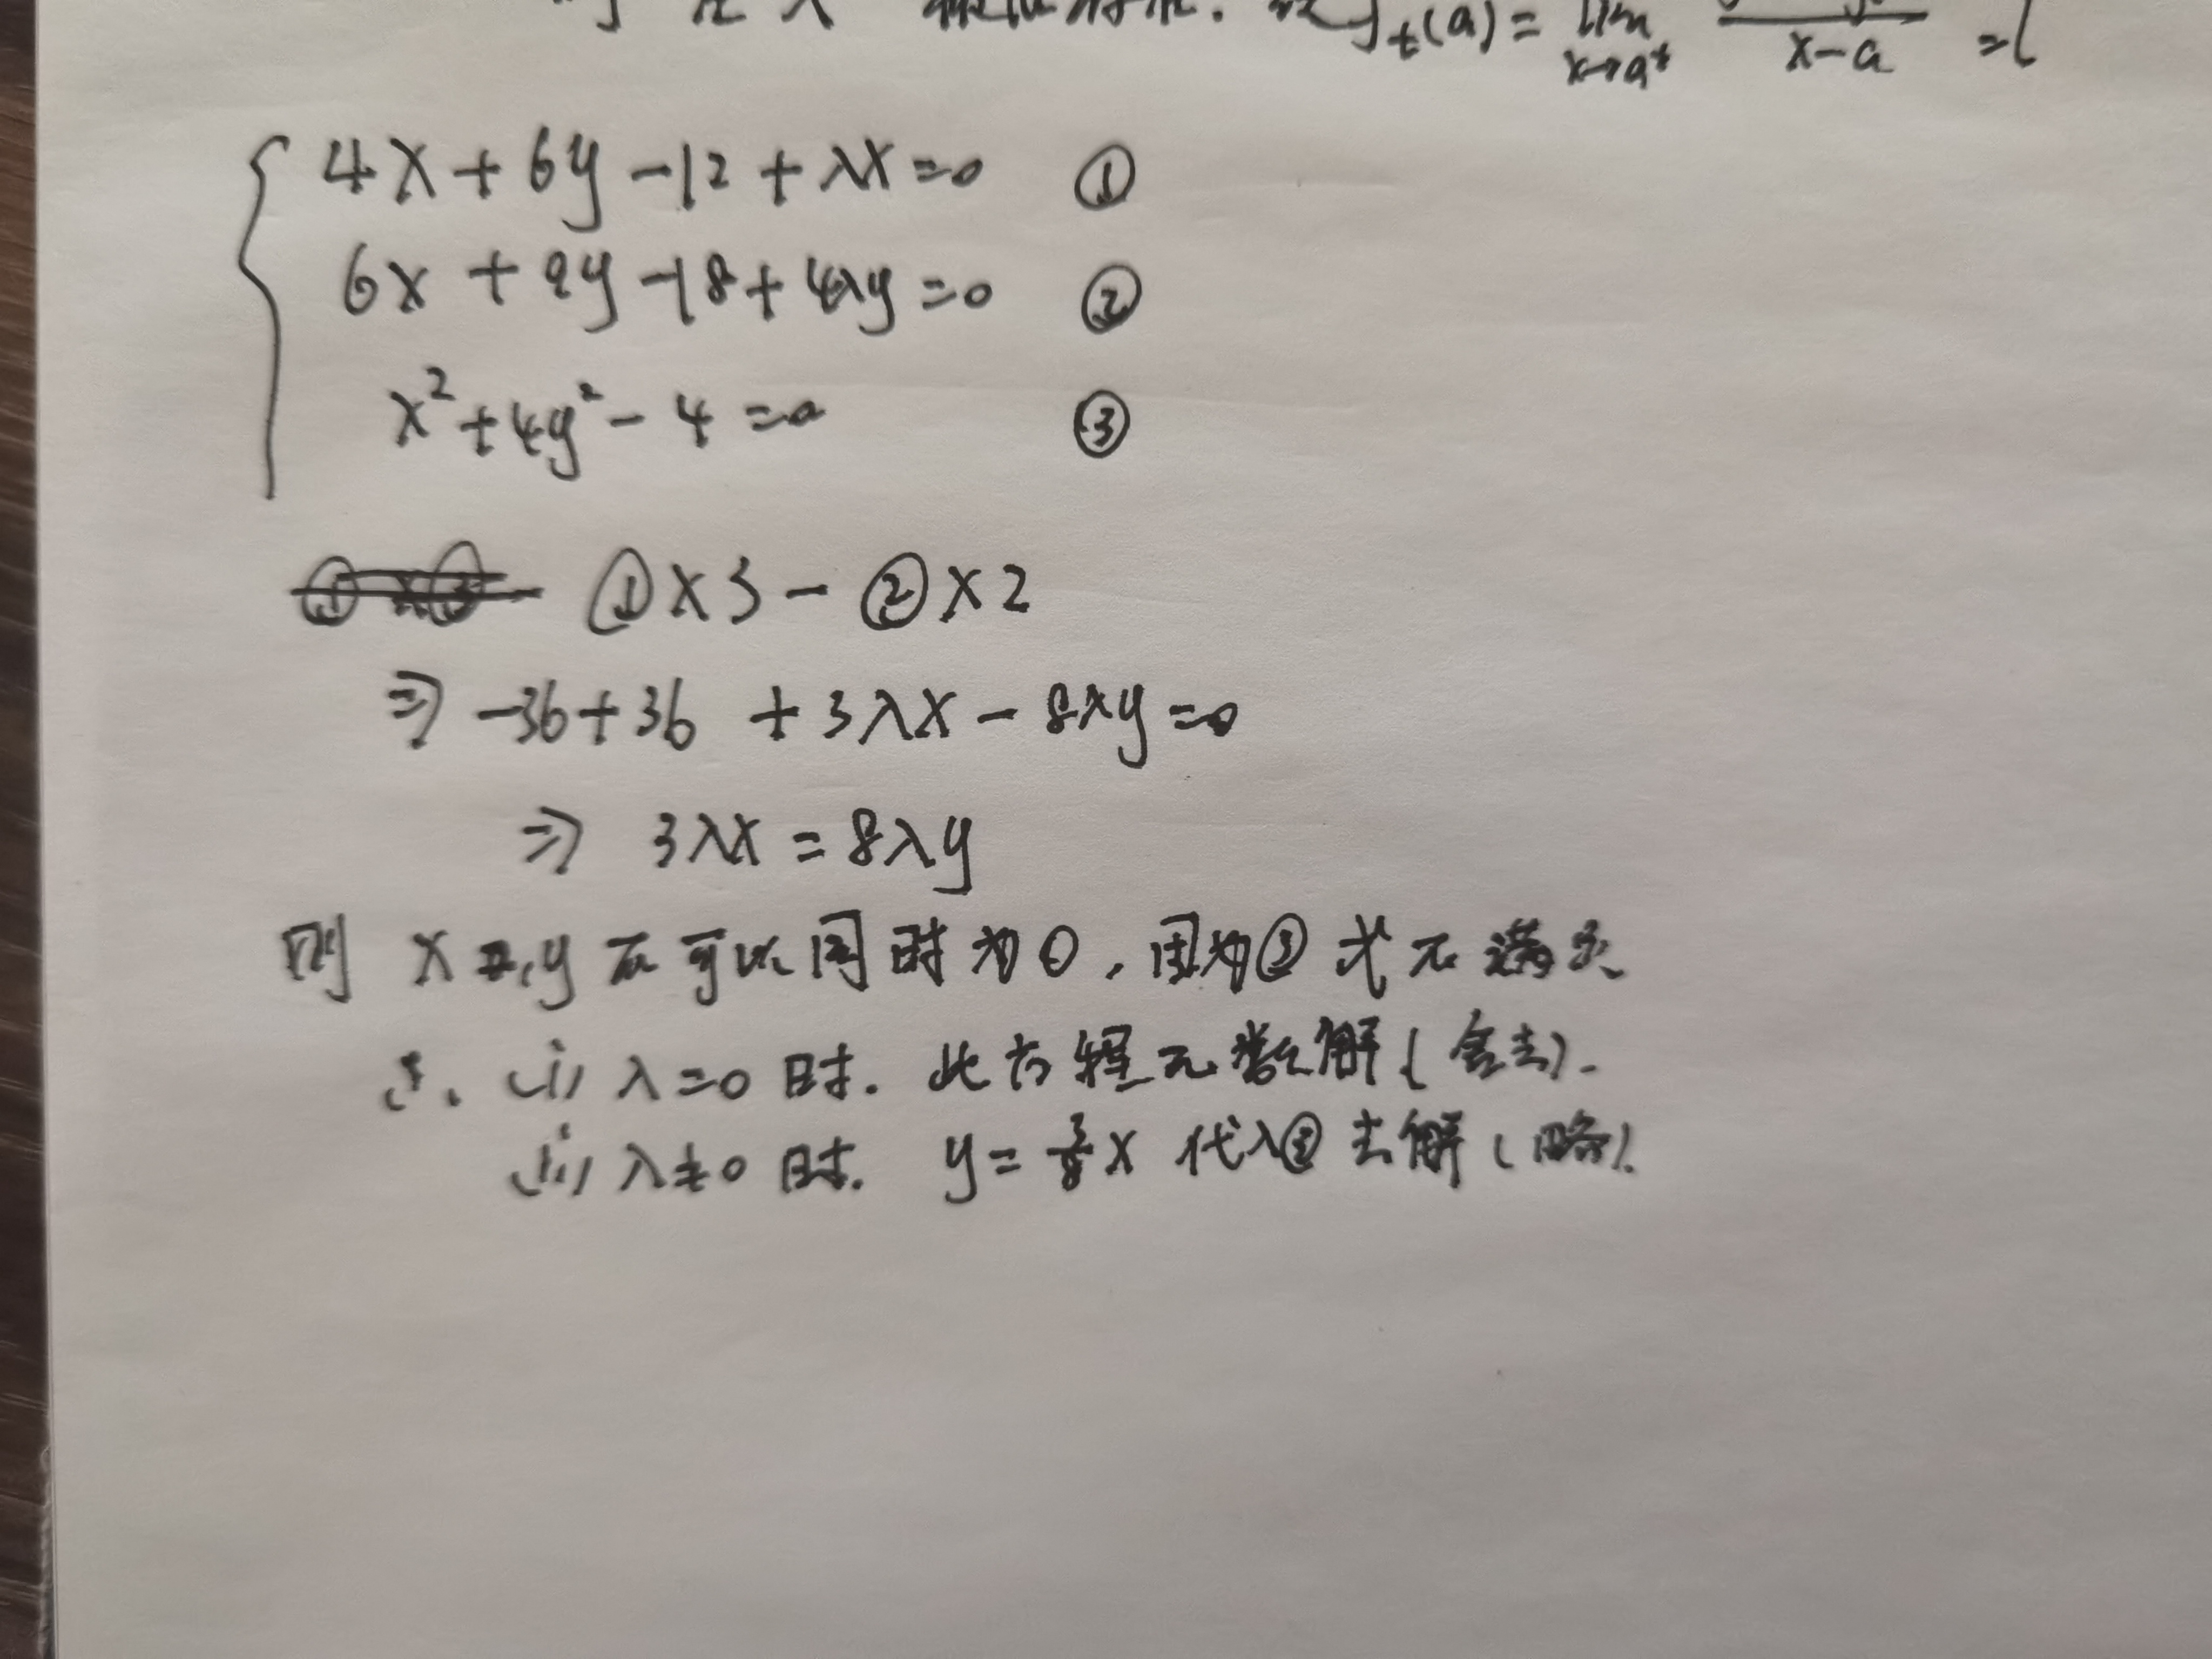 f₊(a) = lim x→a⁺ x-a =
4x + 6y - 12 + λx = 0 ①
6x + 9y - 18 + 4λy = 0 ②
x² + 4y² - 4 = 0 ③
①×3 - ②×2
⇒ -36 + 36 + 3λx - 8λy = 0
⇒ 3λx = 8λy
则 x, y 不可以同时为0, 因为③式不满足
∴ (i) λ=0时. 此方程无数解(舍去).
(ii) λ≠0时. y = 3/8 x 代入③去解(略).